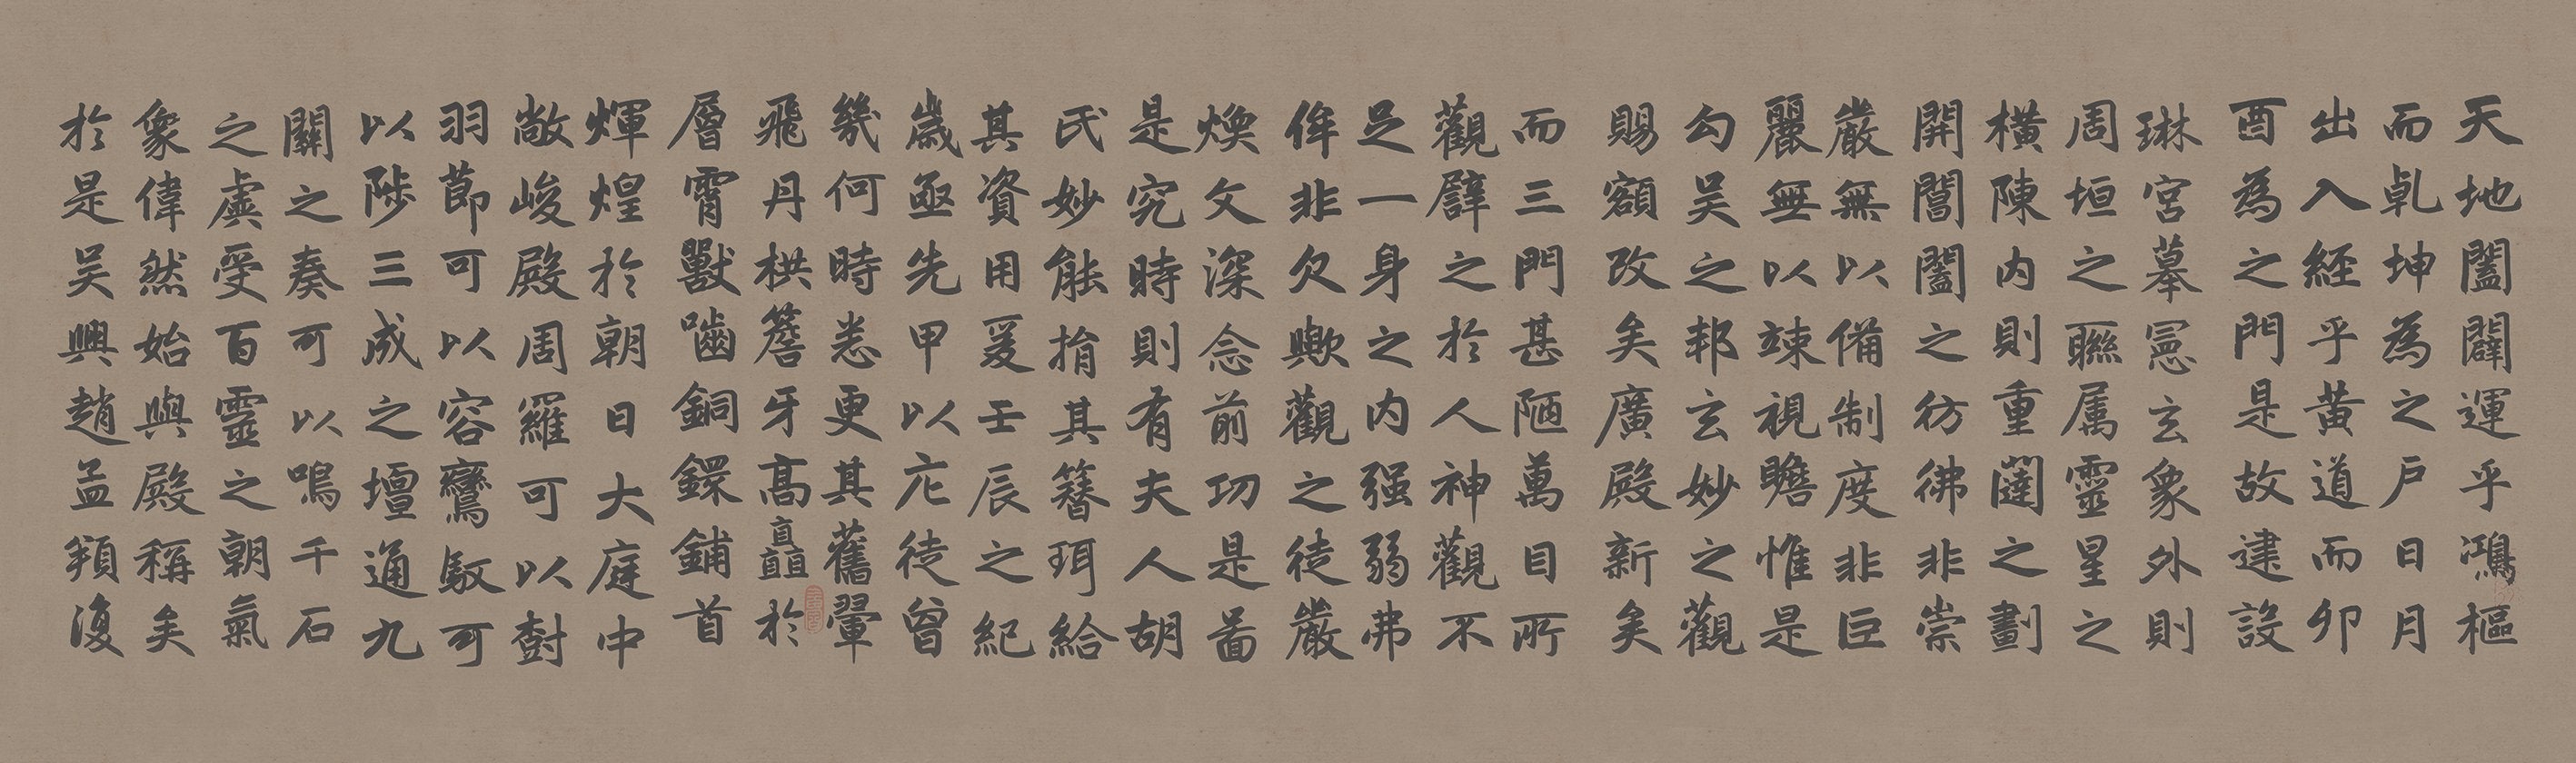 天地闔闢運乎鴻樞
而乹坤為之戶日月
出入經乎黃道而卯
酉為之門是故建設
琳宮摹憲玄象外則
周垣之聯属靈星之
橫陳内則重闥之劃
開閶闔之彷彿非崇
嚴無以備制度非巨
麗無以竦視瞻惟是
勾吴之邦玄妙之觀
賜額改矣廣殿新矣
而三門甚陋萬目所
觀譬之於人神觀不
足一身之内强弱弗
侔非欠歟觀之徒嚴
煥文深念前功是啚
是究時則有夫人胡
氏妙能捐其簪珥給
其資用爰壬辰之紀
歲亟先甲以庀徒曾
幾何時悉更其舊翬
飛丹栱簷牙髙矗於
層霄獸嚙銅鐶鋪首
煇煌於朝日大庭中
敞峻殿周羅可以對
羽節可以容鸞馭可
以陟三成之壇通九
關之奏可以鳴千石
之虡受百靈之朝氣
象偉然始與殿稱矣
於是吴興趙孟頫復